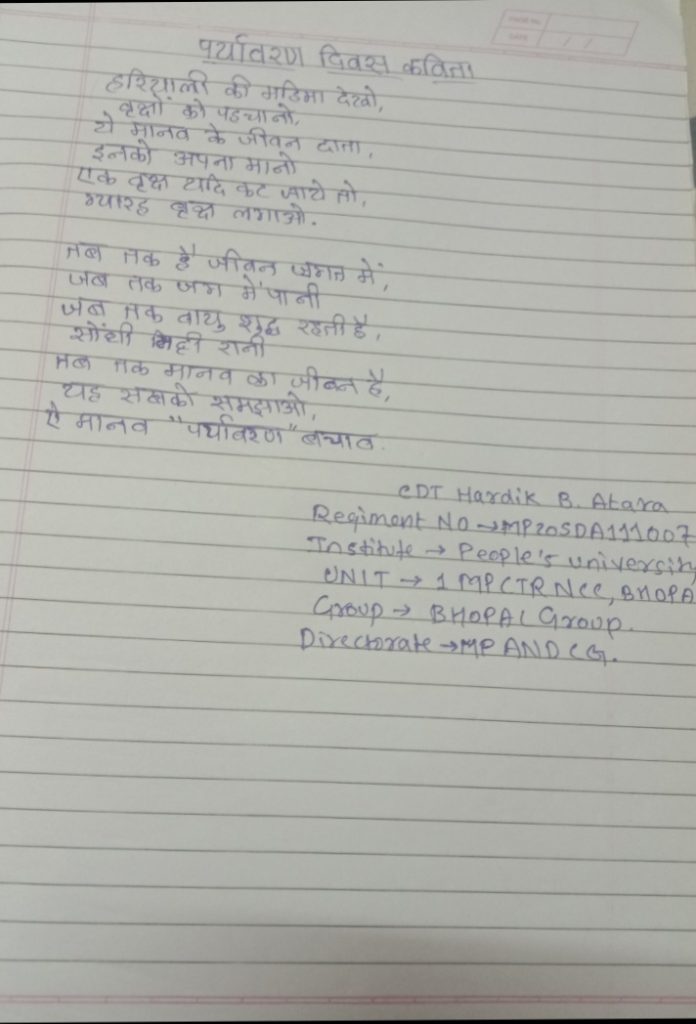 PAGE No.
DATE
पर्यावरण दिवस कविता
हरियाली की महिमा देखो,
वृक्षों को पहचानो,
ये मानव के जीवन दाता,
इनको अपना मानो
एक वृक्ष यदि कट जाये तो,
ग्यारह वृक्ष लगाओ.
तब तक है जीवन जगत में,
जब तक जग में पानी
जब तक वायु शुद्ध रहती है,
सोंधी मिट्टी रानी
तब तक मानव का जीवन है,
यह सबको समझाओ,
ऐ मानव "पर्यावरण" बचाव.
CDT Hardik B. Atara
Regiment NO → MP20SDA111007
Institute → People's university
UNIT → 1 MPCTR NCC, BHOPA
Group → BHOPAL Group.
Directorate → MP AND CG.